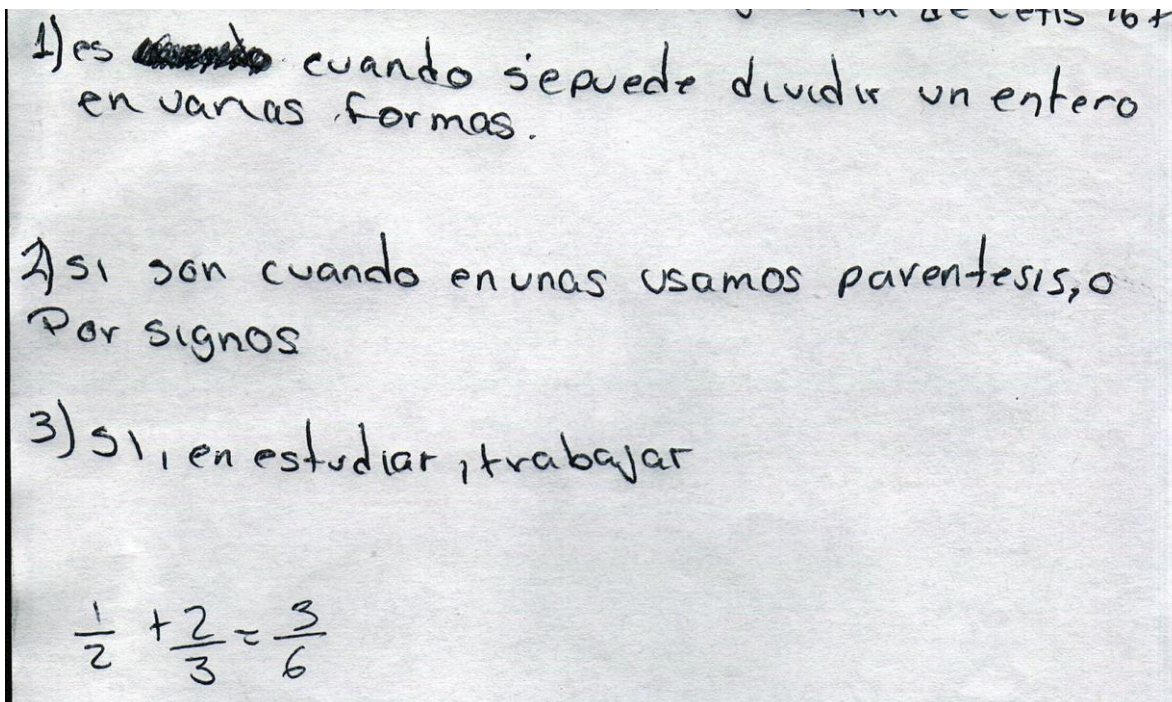 de cetis 167
1) es cuando sepuede dividir un entero
en varias formas.
2) si son cuando en unas usamos parentesis, o
Por signos
3) si, en estudiar, trabajar
1/2 + 2/3 = 3/6